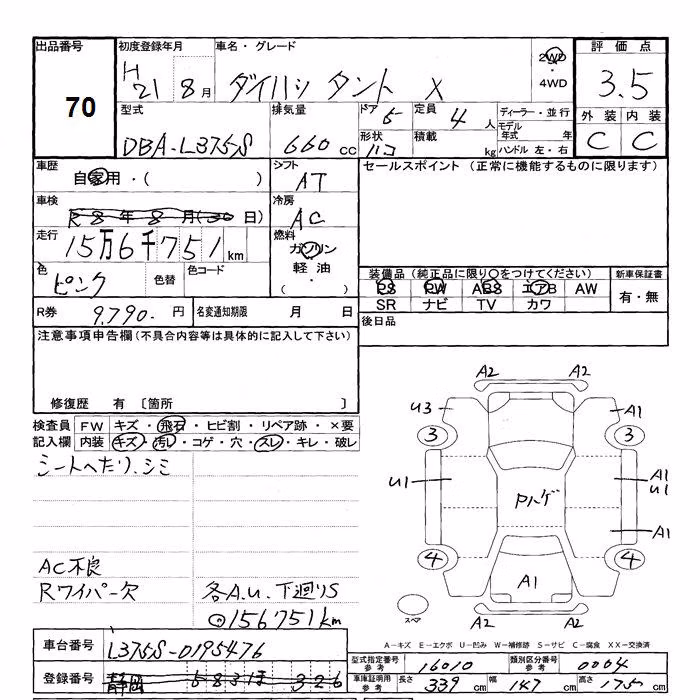 出品番号 初度登録年月 車名・グレード 2WD 評価点
70 H21 8月 ダイハツ タント X ・4WD 3.5
型式 排気量 ドア 5 定員 4人 ディーラー・並行 外装 内装
DBA-L375S 660cc 形状 ハコ 積載 kg モデル年式 年 C C
ハンドル 左・右
車歴 シフト セールスポイント (正常に機能するものに限ります)
自家用・( ) AT
車検 冷房
R8年8月(30日) AC
走行 燃料
15万6千751km ガソリン
色 色替 色コード 軽油 装備品 (純正品に限り○をつけてください) 新車保証書
ピンク ・( ) PS PW ABS エアB AW 有・無
SR ナビ TV カワ
R券 9,790.円 名変通知期限 月 日 後日品
注意事項申告欄(不具合内容等は具体的に記入して下さい)
修復歴 有 〔箇所 〕
検査員 FW キズ・飛石・ヒビ割・リペア跡・×要
記入欄 内装 キズ・汚れ・コゲ・穴・スレ・キレ・破レ
シートへたり、シミ
AC不良
Rワイパー欠 各A.U.下廻りS
156751km
A2 A2
U3 A1
3 3
U1 Pハゲ A1 U1
A1
4 4
A1
スペア A2 A2
A-キズ E-エクボ U-凹み W-補修跡 S-サビ C-腐食 XX-交換済
車台番号 L375S-0195476
型式指定番号 参考 16010 類別区分番号 参考 0004
登録番号 静岡 583 ほ 326
車庫証明用 参考 長さ 339cm 幅 147cm 高さ 175cm